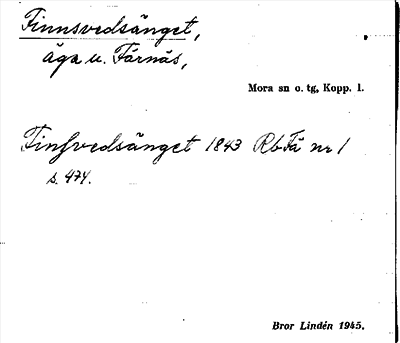 Finnsvedsänget,
äga u. Färnäs,
Mora sn o. tg, Kopp. l.
Finsvedsänget 1843 RbFä nr 1
s. 474.
Bror Lindén 1945.